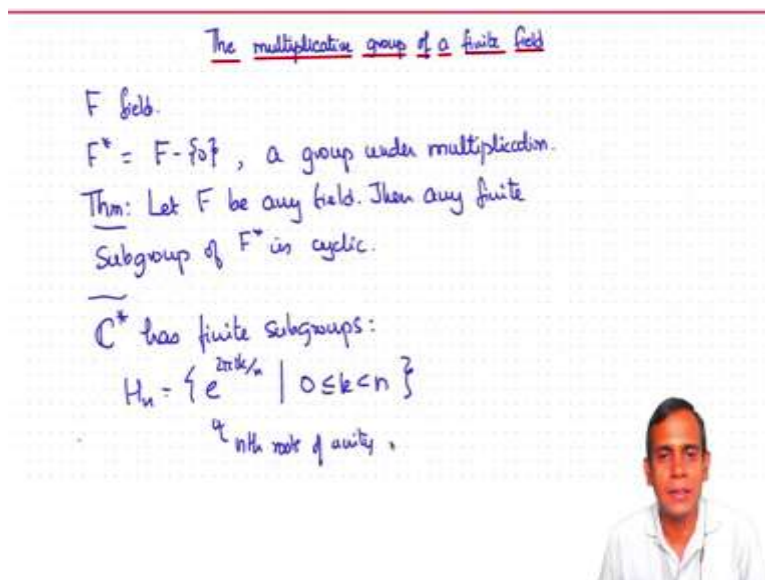 The multiplicative group of a finite field
F field.
F* = F - {0}, a group under multiplication.
Thm: Let F be any field. Then any finite
Subgroup of F* is cyclic.
ℂ* has finite subgroups:
Hₙ = { e^{2πik/n} | 0 ≤ k < n }
nth roots of unity.